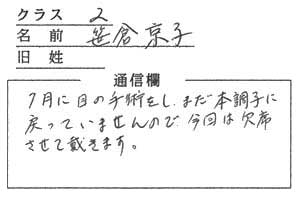 クラス 2
名前 笹倉京子
旧姓
通信欄
7月に目の手術をし、まだ本調子に
戻っていませんので、今回は欠席
させて戴きます。